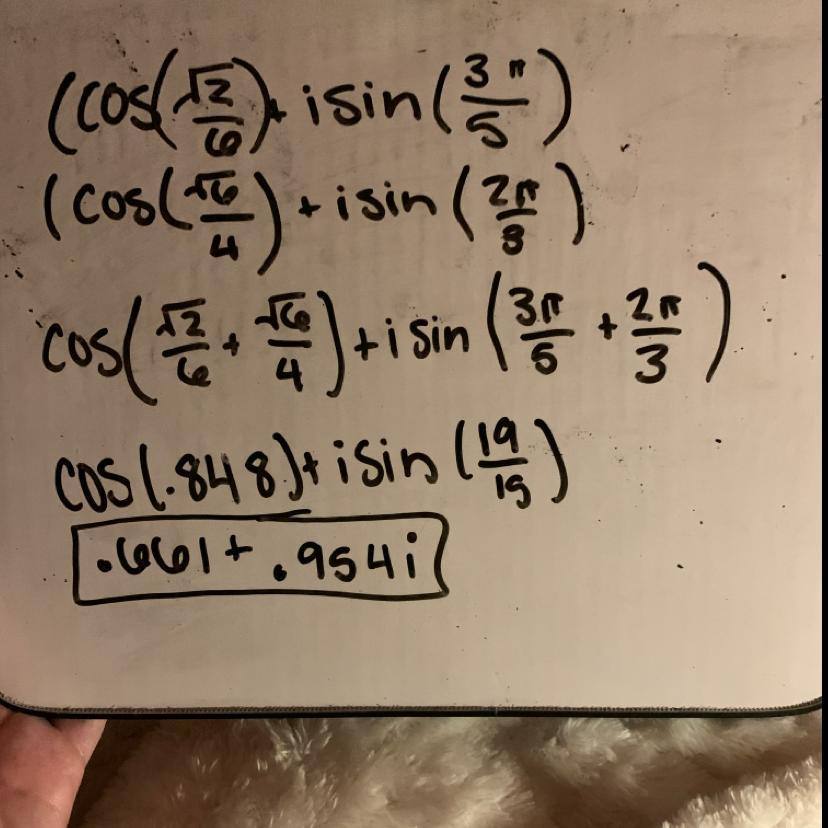 (cos(√2/6)+ isin(3π/5)
(cos(√6/4)+isin(2π/3)
cos(√2/6+√6/4)+isin(3π/5+2π/3)
cos(.848)+isin(19/15)
.661+.954i